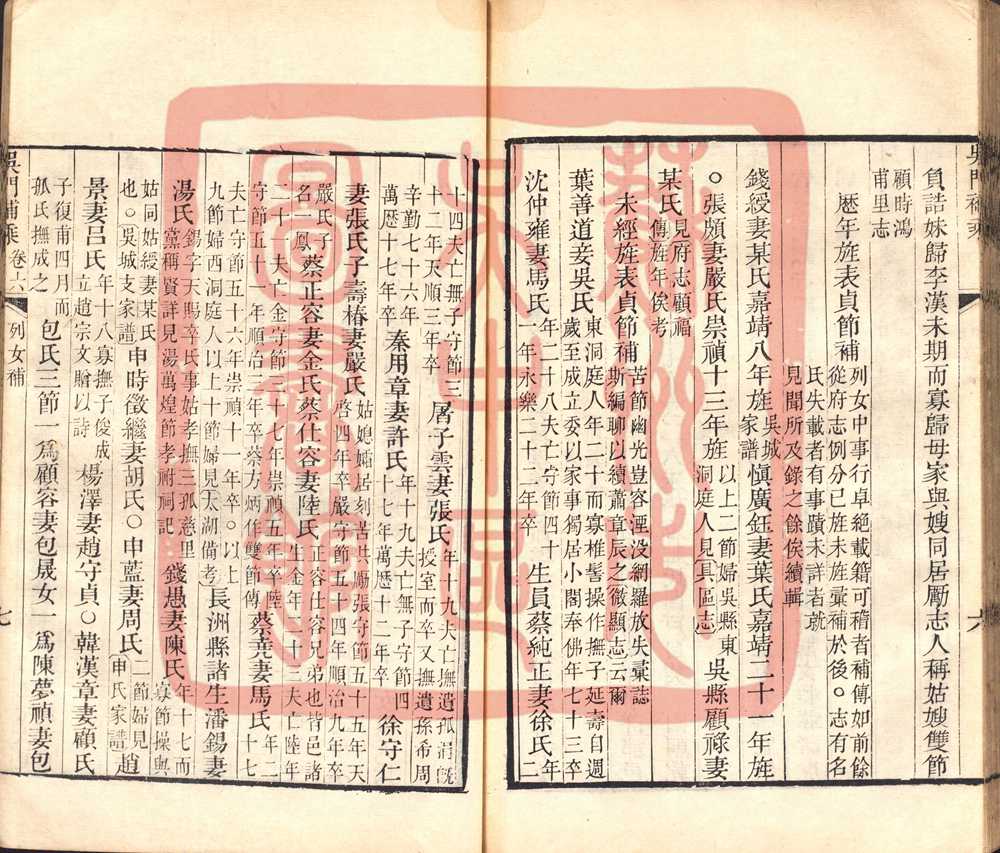 吳門補乘
六
負詰妹歸李漢未期而寡歸母家與嫂同居勵志人稱姑嫂雙節
顧時鴻
甫里志
歷年旌表貞節補
列女中事行卓絕載籍可稽者補傳如前餘
從府志例分已旌未旌彙補於後○志有名
氏失載者有事蹟未詳者就
見聞所及錄之餘俟續輯
錢綬妻某氏嘉靖八年旌
吳城
家譜
愼廣鈺妻葉氏嘉靖二十一年旌
○張頗妻嚴氏崇禎十三年旌
以上二節婦吳縣東
洞庭人見具區志
吳縣顧祿妻
某氏
見府志顧福
傳旌年俟考
未經旌表貞節補
苦節幽光豈容湮没網羅放失彙誌
斯編聊以續蕭章辰之微顯志云爾
葉善道妾吳氏
東洞庭人年二十而寡椎髻操作撫子延壽自週
歲至成立委以家事獨居小閣奉佛年七十三卒
沈仲雍妻馬氏
年二十八夫亡守節四十
一年永樂二十二年卒
生員蔡純正妻徐氏
年
二
十四夫亡無子守節三
十二年天順三年卒
屠子雲妻張氏
年十九夫亡撫遺孤涓旣
授室而卒又撫遺孫希周
辛勤七十六年
萬歷十七年卒
秦用章妻許氏
年十九夫亡無子守節四
十七年萬歷十二年卒
徐守仁
妻張氏子壽椿妻嚴氏
姑媳孀居刻苦共勵張守節五十五年天
啓四年卒嚴守節五十四年順治九年卒
嚴氏子
名一鳳
蔡正容妻金氏蔡仕容妻陸氏
正容仕容兄弟也皆邑諸
生金年二十二夫亡陸年
二十一夫亡金守節三十七年崇禎五年卒陸
守節五十一年順治二年卒蔡方炳作雙節傳
蔡堯妻馬氏
年二
十七
夫亡守節五十六年崇禎十一年卒○以上
九節婦西洞庭人以上十節婦見太湖備考
長洲縣諸生潘錫妻
湯氏
錫字天賜卒氏事姑孝撫三孤慈里
黨稱賢詳見湯萬煌節孝祔祠記
錢愚妻陳氏
年十七而
寡節操與
姑同姑綬妻某氏
也○吳城支家譜
申時徵繼妻胡氏○申藍妻周氏
二節婦見
申氏家譜
趙
景妻呂氏
年十八寡撫子俊成
立趙宗文贈以詩
楊澤妻趙守貞○韓漢章妻顧氏
子復甫四月而
孤氏撫成之
包氏三節一爲顧容妻包晟女一爲陳夢禎妻包
吳門補乘卷六
列女補
七